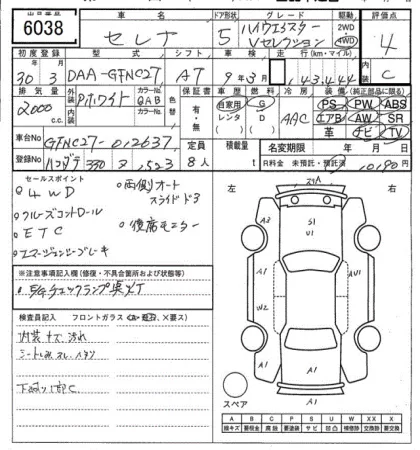 出品番号
6038
車名 ドア形状 グレード 駆動 評価点
セレナ 5 ハイウェイスター Vセレクション 2WD 4WD 4
初度登録 型式 シフト 車検 走行(km・マイル) 内装
30年3月 DAA-GFNC27 AT 9年3月 143,444 C
排気量 外装 カラーNo. 色替 保証書 車歴 燃料 冷房 装備(純正部品に限る)
2000 c.c. Pホワイト QAB 有・無 自家用 レンタ G D AAC PS PW ABS
エアB AW SR
革 ナビ TV
車台No GFNC27-012637 定員 積載量 名変期限 年 月 日
登録No 330 ヌ 1523 8人 t R料金 未預託・預託済 10190円
セールスポイント
4WD
両側オートスライドド3
クルーズコントロール
ETC
後席モニター
エマージェンシーブレーキ
※注意事項記入欄(修復・不具合箇所および状態等)
E/Gチェックランプ点灯
検査員記入 フロントガラス
内装キズ、汚れ
シートしみ
下廻りサビC
左 右
A3 S1 U1
A1 A1 AU1
W2
A1
A1 A1
スペア
A B C P S U W X XX
線キズ 要板金 腐蝕 要塗装 サビ 凹凸 補修跡 要交換 交換跡